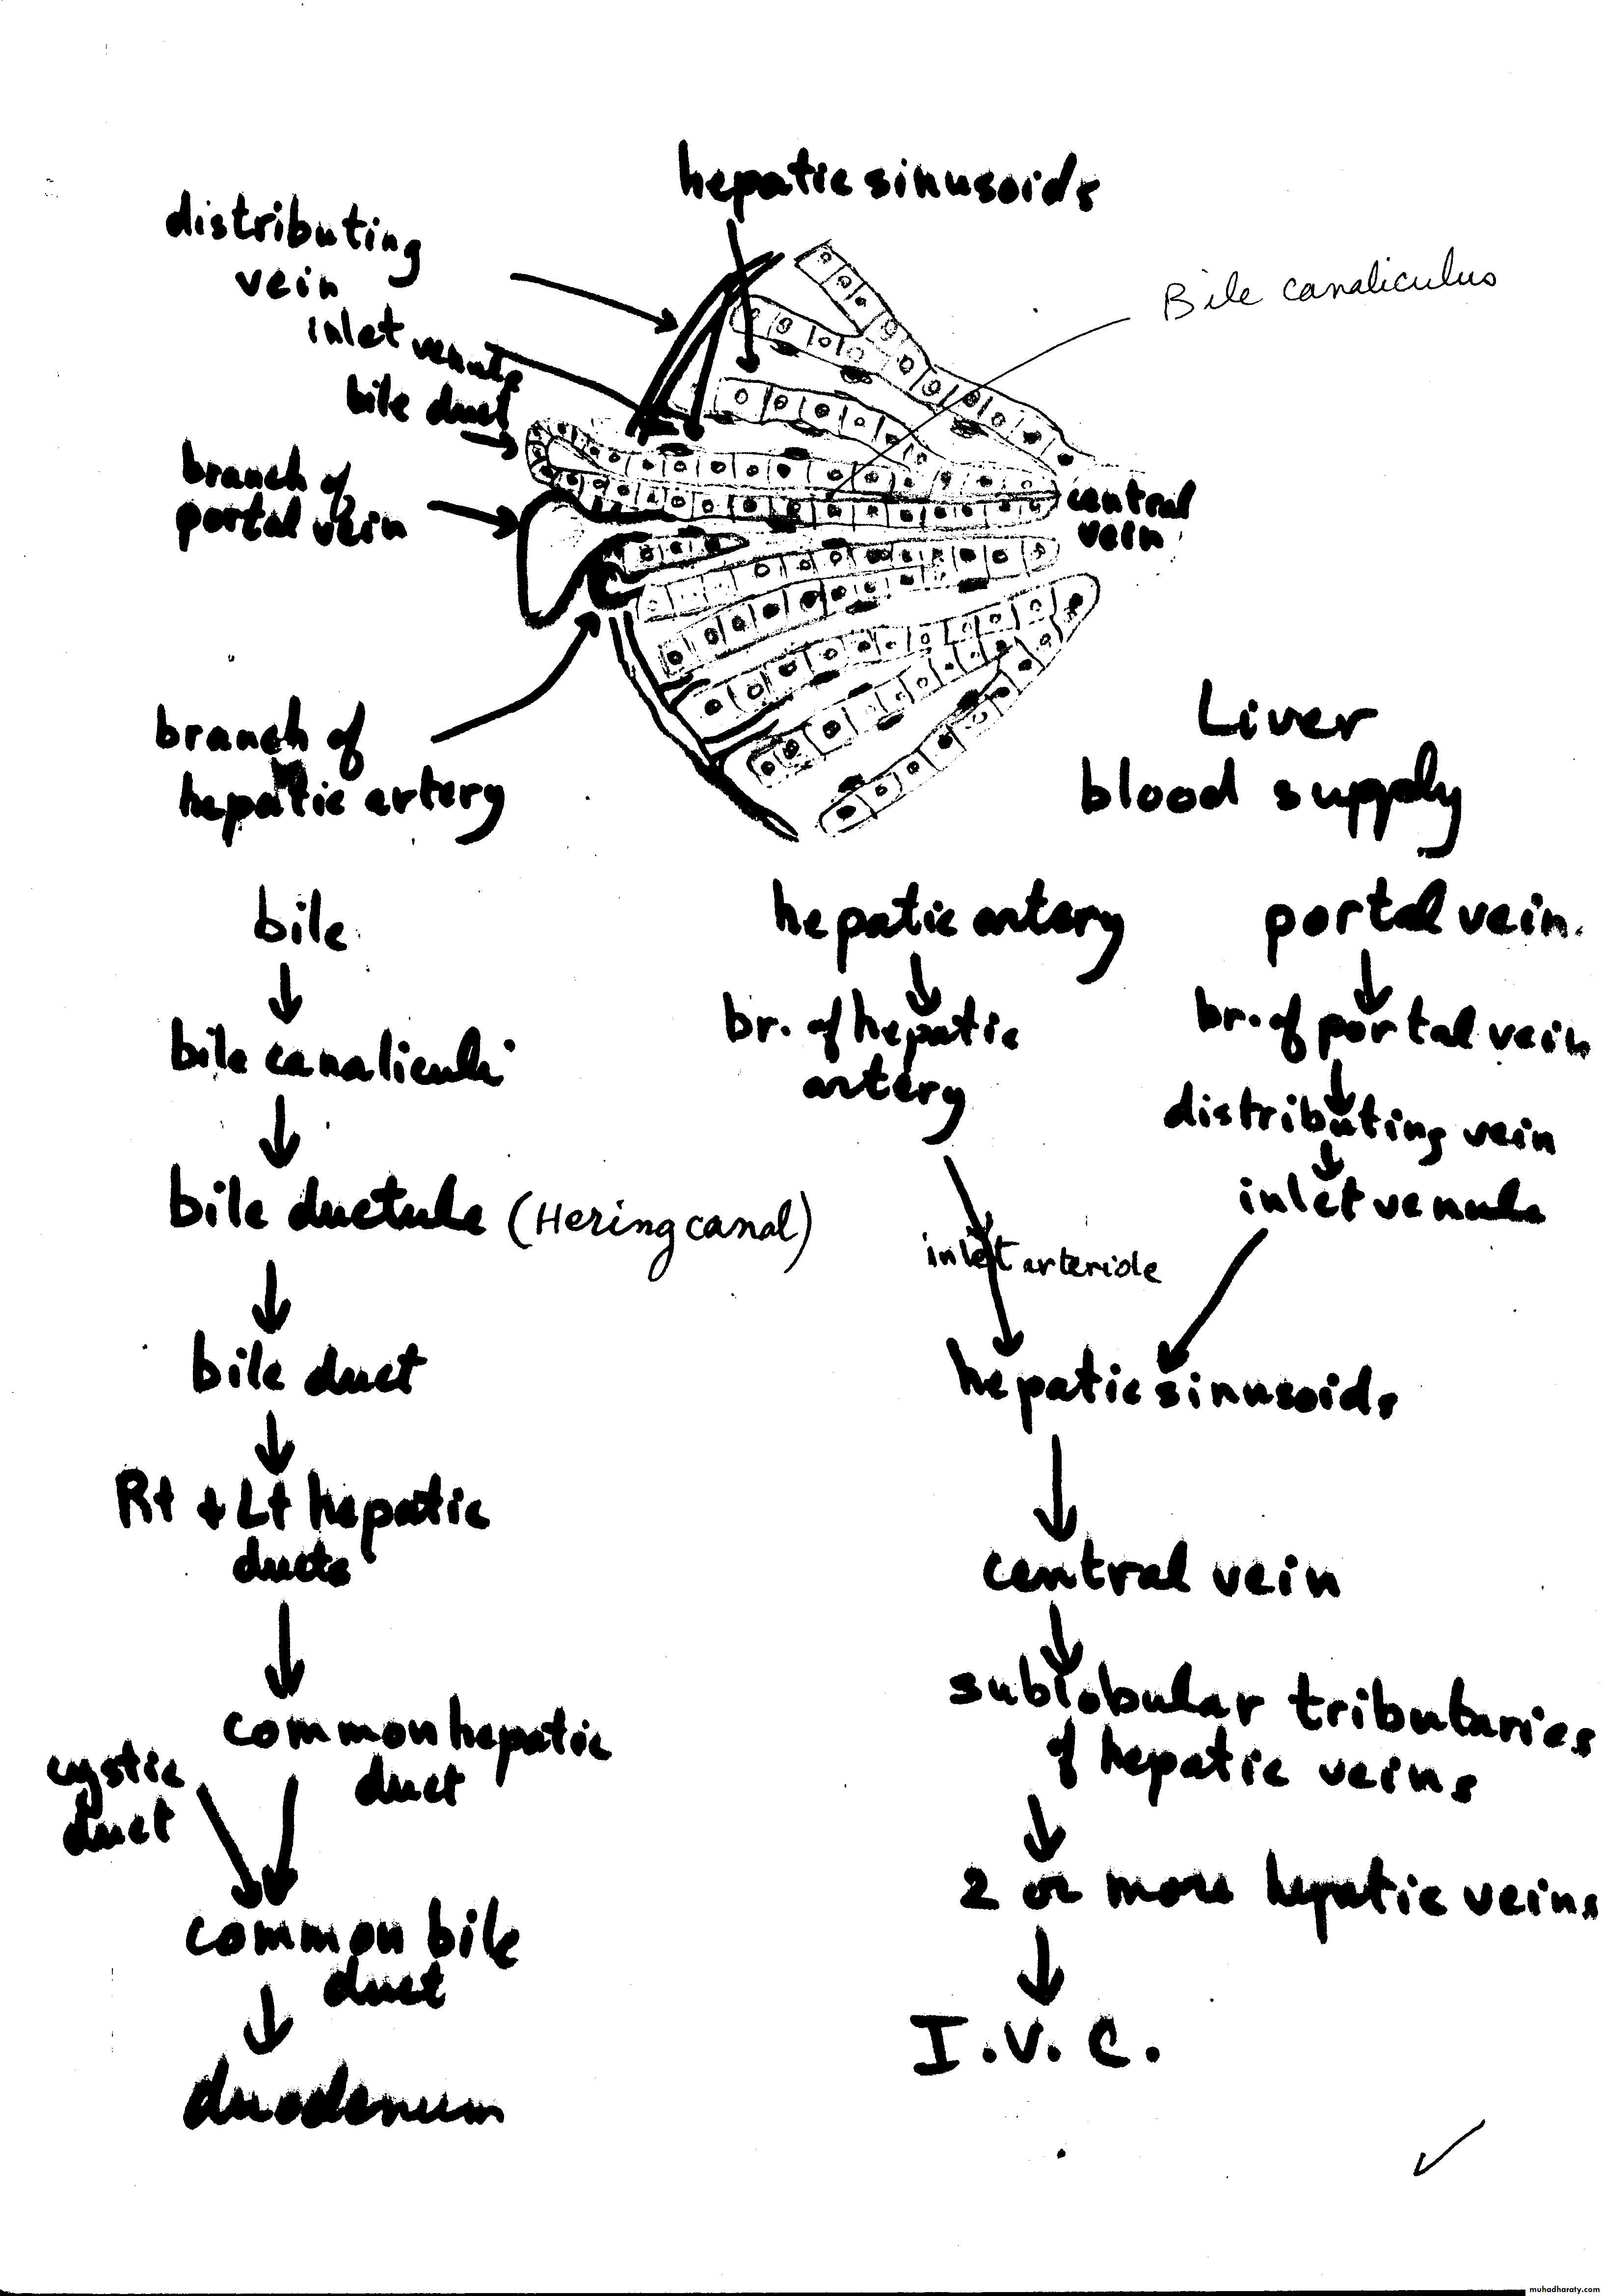 hepatic sinusoids
distributing
vein
inlet venule
bile duct
branch of
portal vein
Bile canaliculus
central
vein
branch of
hepatic artery
Liver
blood supply
bile
bile canaliculi
bile ductule (Hering canal)
bile duct
Rt + Lt hepatic
ducts
common hepatic
duct
cystic
duct
common bile
duct
duodenum
hepatic artery
br. of hepatic
artery
inlet arteriole
portal vein.
br. of portal vein
distributing vein
inlet venule
hepatic sinusoids
central vein
sublobular tributaries
of hepatic veins
2 or more hepatic veins
I.V.C.
muhadharaty.com